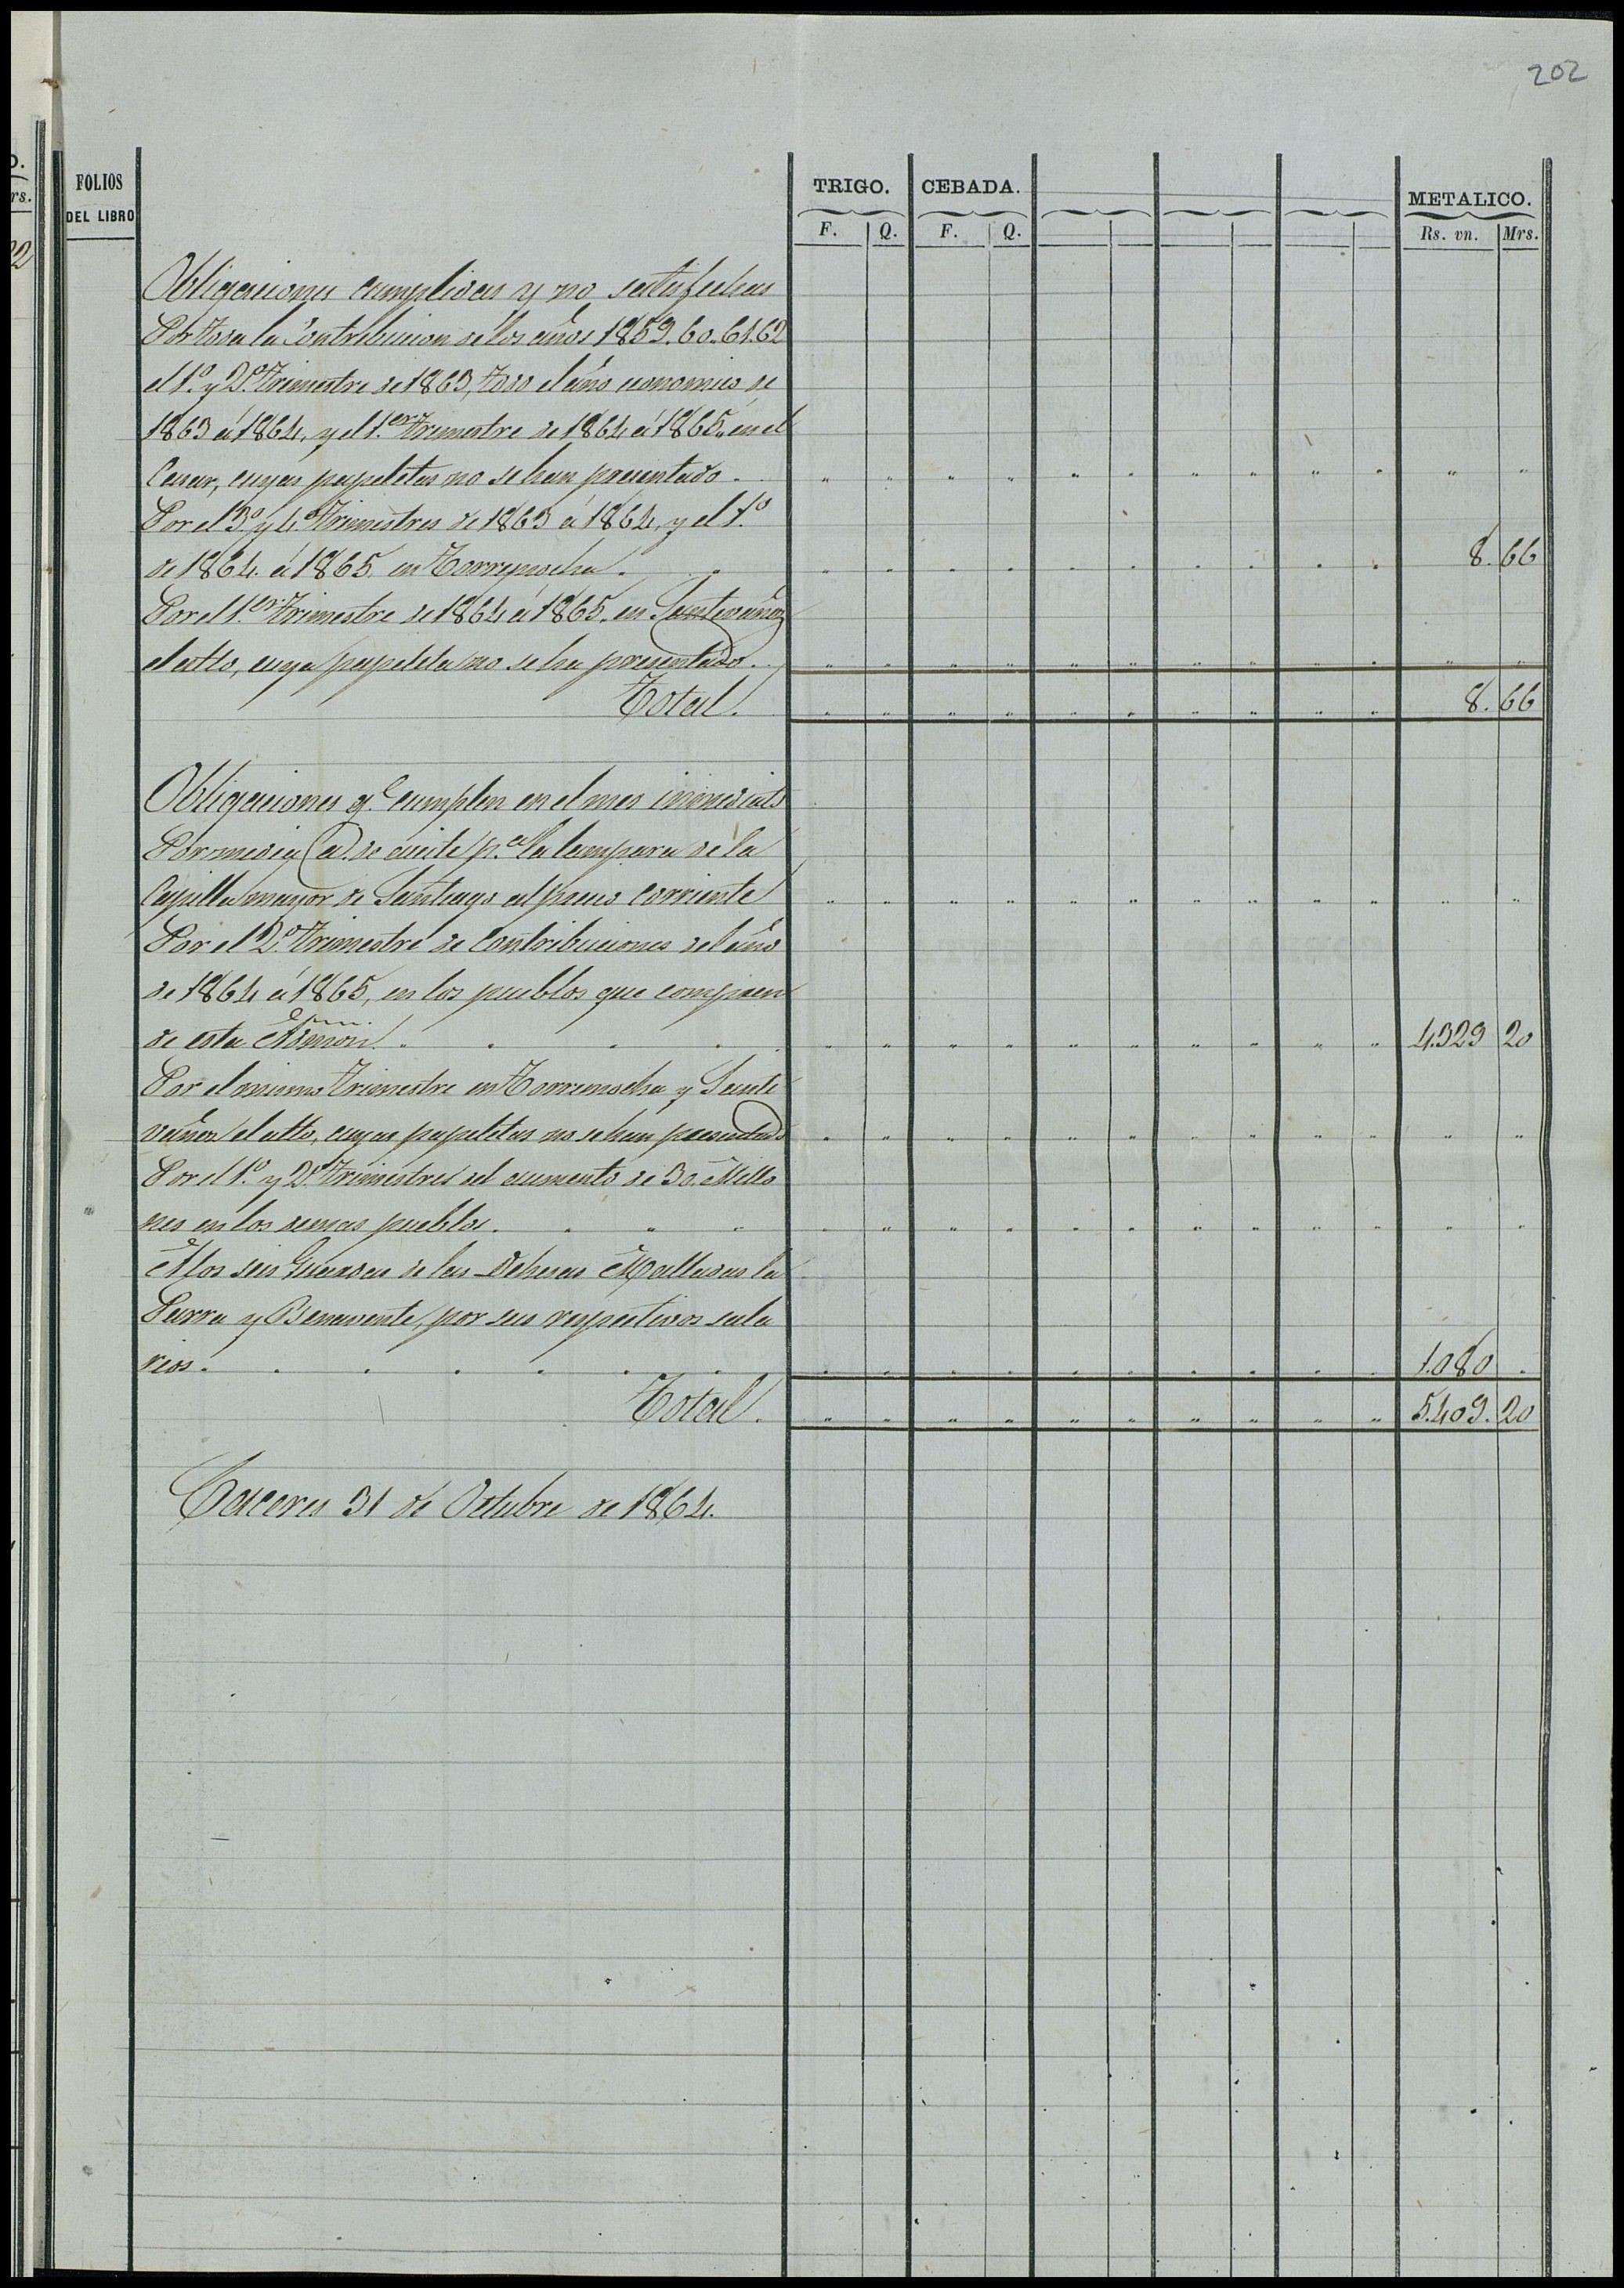 202
FOLIOS
DEL LIBRO
TRIGO. CEBADA. METALICO.
F. Q. F. Q. Rs. vn. Mrs.
Obligaciones cumplidas y no satisfechas
Por toda la Contribucion de los años 1859.60.61.62
el 1.º y 2.º Trimestre de 1863, todo el año economico de
1863 á 1864, y el 1.er trimestre de 1864 á 1865, en el
Casar, cuyas papeletas no se han presentado.
Por el 3.º y 4.º Trimestres de 1863 á 1864, y el 1.º
de 1864 á 1865 en Torremocha. 8. 66
Por el 1.er Trimestre de 1864 á 1865, en Santivañez
el alto, cuya papeleta no se ha presentado.
Total. 8. 66
Obligaciones q.e cumplen en el mes inmediato
Por media @. de aceite p.a la lampara de la
Capilla mayor de Santiago al precio corriente
Por el 2.º Trimestre de Contribuciones del año
de 1864 á 1865, en los pueblos que compren
de esta Admon. 4.329 20
Por el mismo Trimestre en Torremocha y Santi
vañez el alto, cuyas papeletas no se han presentado
Por el 1.º y 2.º Trimestres del aumento de 30. Millo
nes en los demas pueblos.
A los seis Guardas de las Dehesas Malladas la
Parra y Benavente, por sus respectivos sala
rios. 1.080
Total. 5.409. 20
Caceres 31 de Octubre de 1864.